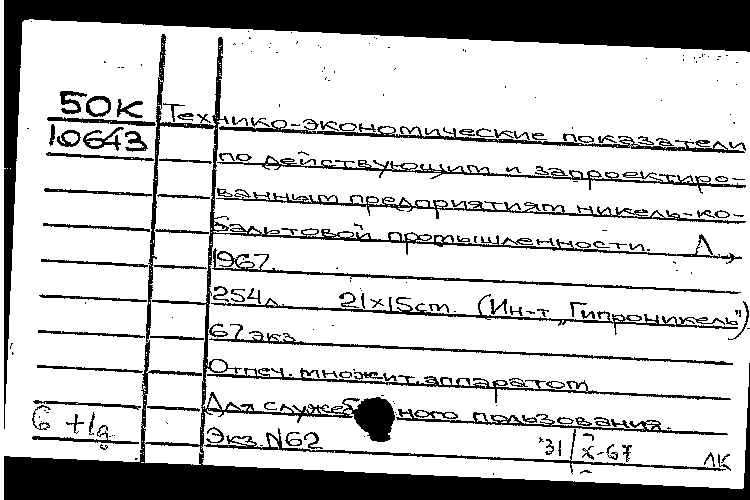 50К Технико-экономические показатели
10643 по действующим и запроектиро-
ванным предприятиям никель-ко-
бальтовой промышленности. Л.,
1967.
254л. 21х15см. (Ин-т „Гипроникель")
67 экз.
Отпеч. множит. аппаратом.
Для служебного пользования.
Экз. N62
31/X-67 ЛК